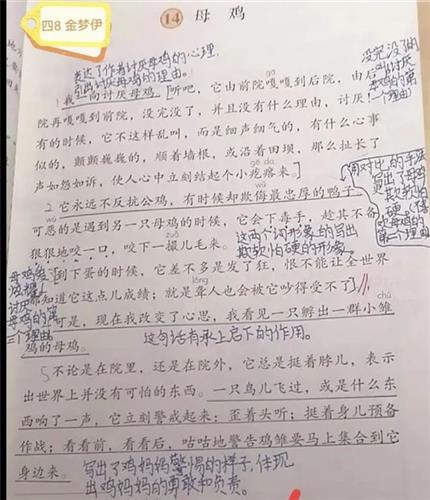 四8 金梦伊
14 母鸡
表达了作者讨厌母鸡的心理，
引出讨厌母鸡的理由。
没完没了的
叫(讨厌
母鸡的第
一个理由)
1 我一向讨厌母鸡。[听吧，它由前院嘎嘎到后院，由后
gā
院再嘎嘎到前院，没完没了，并且没有什么理由，讨厌！
有的时候，它不这样乱叫，而是细声细气的，有什么心事
似的，颤颤巍巍的，顺着墙根，或沿着田坝，那么扯长了
gē da
声如怨如诉，使人心中立刻结起个小疙瘩来。]
2 它永远不反抗公鸡，有时候却欺侮最忠厚的鸭子。更
可恶的是遇到另一只母鸡的时候，它会下毒手，趁其不备，
狠狠地咬一口，咬下一撮儿毛来。
这两个词形象的写出
欺软怕硬的形象。
用对比的手法
写出了母鸡
欺软怕
硬。(讨
厌母鸡的
第二个理由
[到下蛋的时候，它差不多是发了狂，恨不能让全世界
lóng
都知道它这点儿成绩；就是聋人也会被它吵得受不了。]
母鸡爱
炫耀！
讨厌
母鸡的第
三个理由
可是，现在我改变了心思，我看见一只孵出一群小雏
chú
鸡的母鸡。
这句话有承上启下的作用。
5 不论是在院里，还是在院外，它总是挺着脖儿，表示
出世界上并没有可怕的东西。一只鸟儿飞过，或是什么东
西响了一声，它立刻警戒起来：歪着头听；挺着身儿预备
作战；看看前，看看后，咕咕地警告鸡雏要马上集合到它
身边来。
写出了鸡妈妈警惕的样子，体现
出鸡妈妈的勇敢和负责。